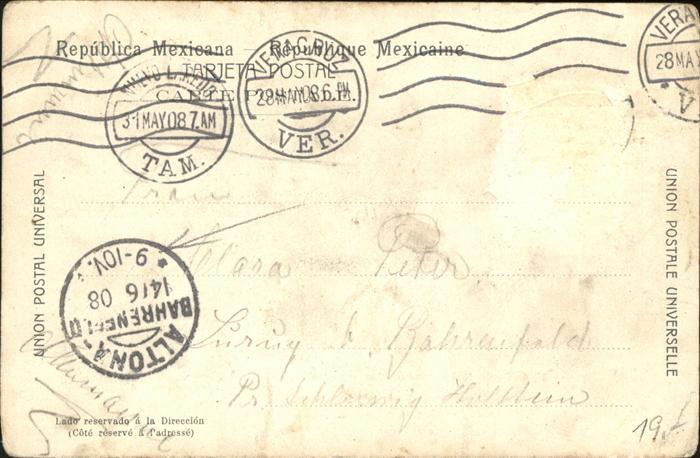 República Mexicana — République Mexicaine
TARJETA POSTAL
NUEVO LAREDO
31 MAY 08 7 AM
TAM.
VERACRUZ
28 MAY 08 6 PM
VER.
VERA
28 MAY
V
UNION POSTAL UNIVERSAL
UNION POSTALE UNIVERSELLE
Frau
Clara Peter
Lurup b. Bahrenfeld
Pr. Schleswig Holstein
ALTONA-
BAHRENFELD
14/6 08
* 9-10V.
Lado reservado á la Dirección
(Côté réservé à l'adressé)